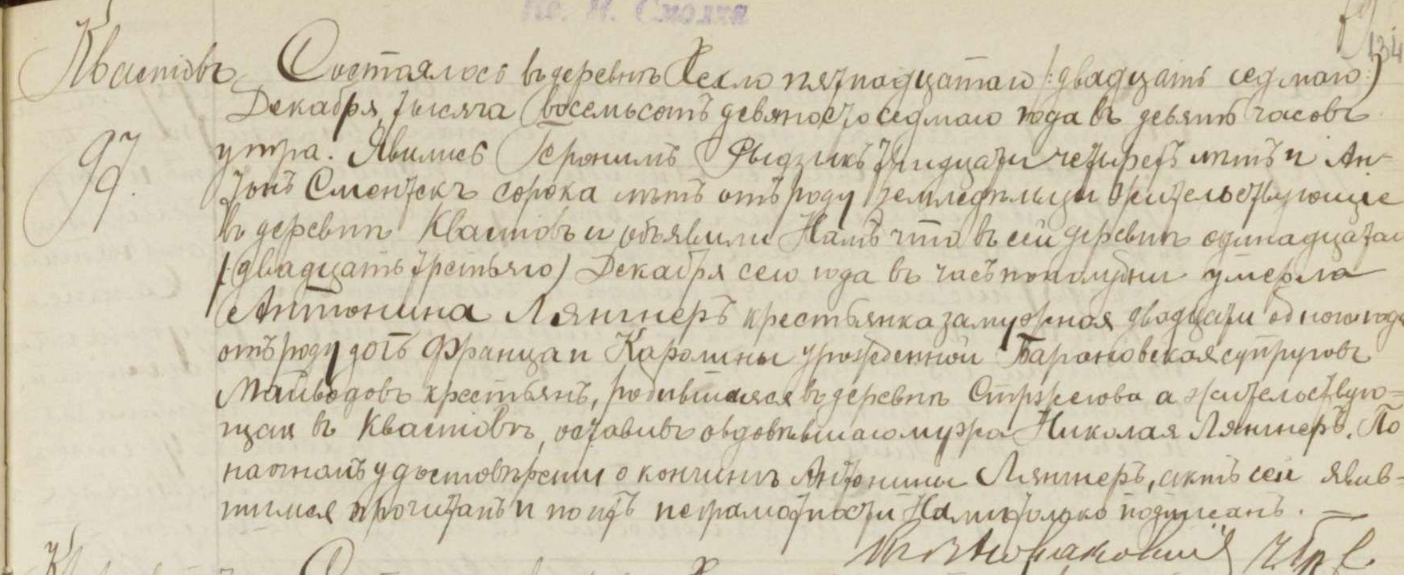 Кс. И. Смолка
134
Квастовъ
97.
Состоялось въ деревнѣ Хехло пятнадцатаго /:двадцать седмаго:/
Декабря, тысяча восемьсотъ девяносто седмаго года въ девять часовъ
утра. Явились Геронимъ Рыдзикъ тридцати четырехъ лѣтъ и Ан-
тонъ Сментекъ сорока лѣтъ отъ роду земледѣльцы жительствующіе
въ деревнѣ Квастовъ и объявили Намъ что въ сей деревнѣ одинадцатаго
/двадцать третьяго) Декабря сего года въ часъ пополудни умерла
Антонина Лянгнеръ крестьянка замужная двадцати одного года
отъ роду дочь Франца и Каролины урожденной Барановская супруговъ
крестьянъ, родившаяся въ деревнѣ а жительствую-
щая въ Квастовѣ, оставивъ овдовѣвшаго мужа Николая Лянгнеръ. По
наочномъ удостовѣреніи о кончинѣ Антонины Лянгнеръ, актъ сей явив-
шимся прочитанъ и по ихъ неграмотности Нами только подписанъ. —